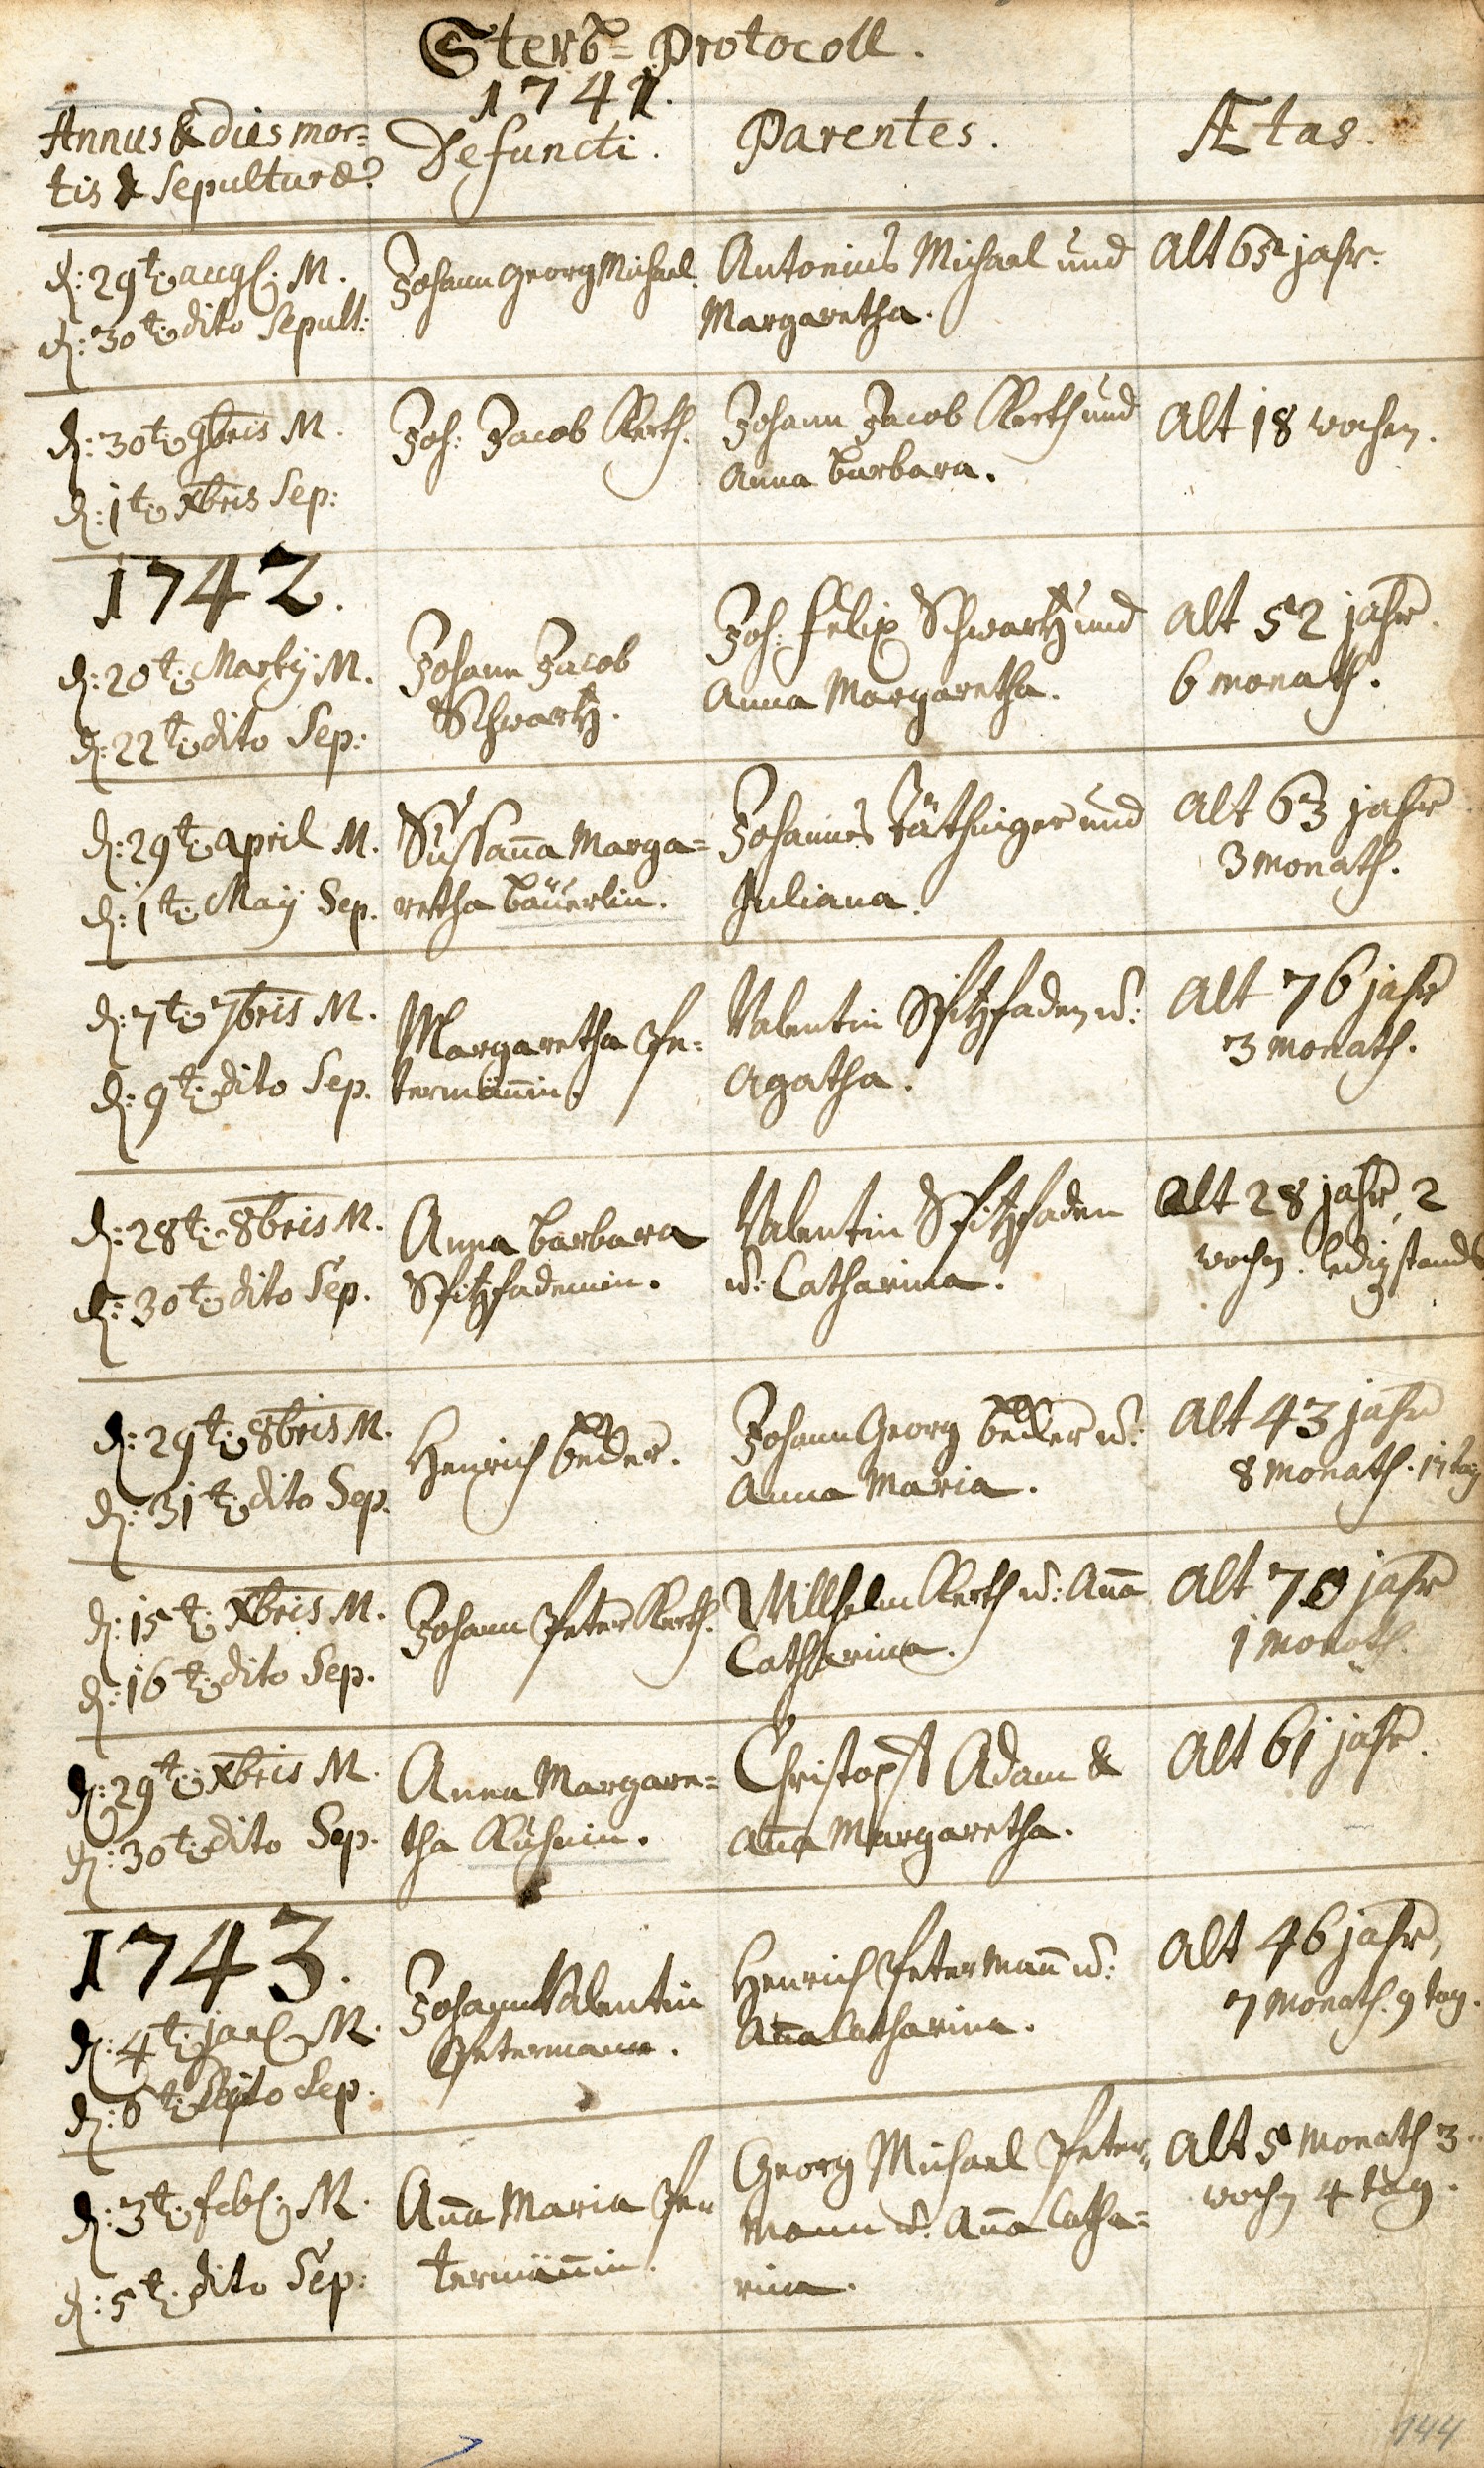 Sterb=Protocoll.
1741.
Annus & dies mor=
tis & Sepulturæ.
Defuncti.
Parentes.
Ætas.
d: 29t. augs: M.
d: 30t. dito Sepult:
Johann Georg Michael.
Antonius Michael und
Margaretha.
Alt 65 jahr.
d: 30t. 9bris M.
d: 1t. Xbris Sep:
Joh: Jacob Kerth.
Johann Jacob Kerth und
Anna barbara.
Alt 18 wochen.
1742.
d: 20t. Martij M.
d: 22t. dito Sep:
Johann Jacob
Schwartz.
Joh: Felix Schwartz und
Anna Margaretha.
Alt 52 jahr.
6 monath.
d: 29t. april M.
d: 1t. Maij Sep.
Sussaña Marga=
retha bäuerlin.
Johannes Täthinger und
Juliana.
Alt 63 jahr
3 monath.
d: 7t. 7bris M.
d: 9t. dito Sep.
Margaretha Pe=
termäñin.
Valentin Spitzfaden u:
Agatha.
Alt 76 jahr
3 monath.
d: 28t. 8bris M.
d: 30t. dito Sep.
Anna barbara
Spitzfadenin.
Valentin Spitzfaden
u: Catharina.
Alt 28 jahr, 2
wochen. ledig stands
d: 29t. 8bris M.
d: 31t. dito Sep.
Henrich beder.
Johann Georg beder u:
Anna Maria.
Alt 43 jahr
8 monath. 14 tag
d: 15t. Xbris M.
d: 16t. dito Sep.
Johann Peter Kerth.
Willhelm Kerth u: Aña
Catharina.
Alt 70 jahr
1 Monath.
d: 29t. Xbris M.
d: 30t. dito Sep.
Anna Margare=
tha Kuhnin.
Christoph Adam &
Aña Margaretha.
Alt 61 jahr.
1743.
d: 4t. jan: M.
d: 6t. dito Sep.
Johann Valentin
Petermann.
Henrich Petermañ u:
Aña Catharina.
Alt 46 jahr,
7 Monath. 9 tag.
d: 3t. feb: M.
d: 5t. dito Sep:
Aña Maria Pe=
termäñin.
Georg Michael Peter=
mann u: Aña Catha=
rina.
Alt 5 Monath 3
wochen 4 tag.
144